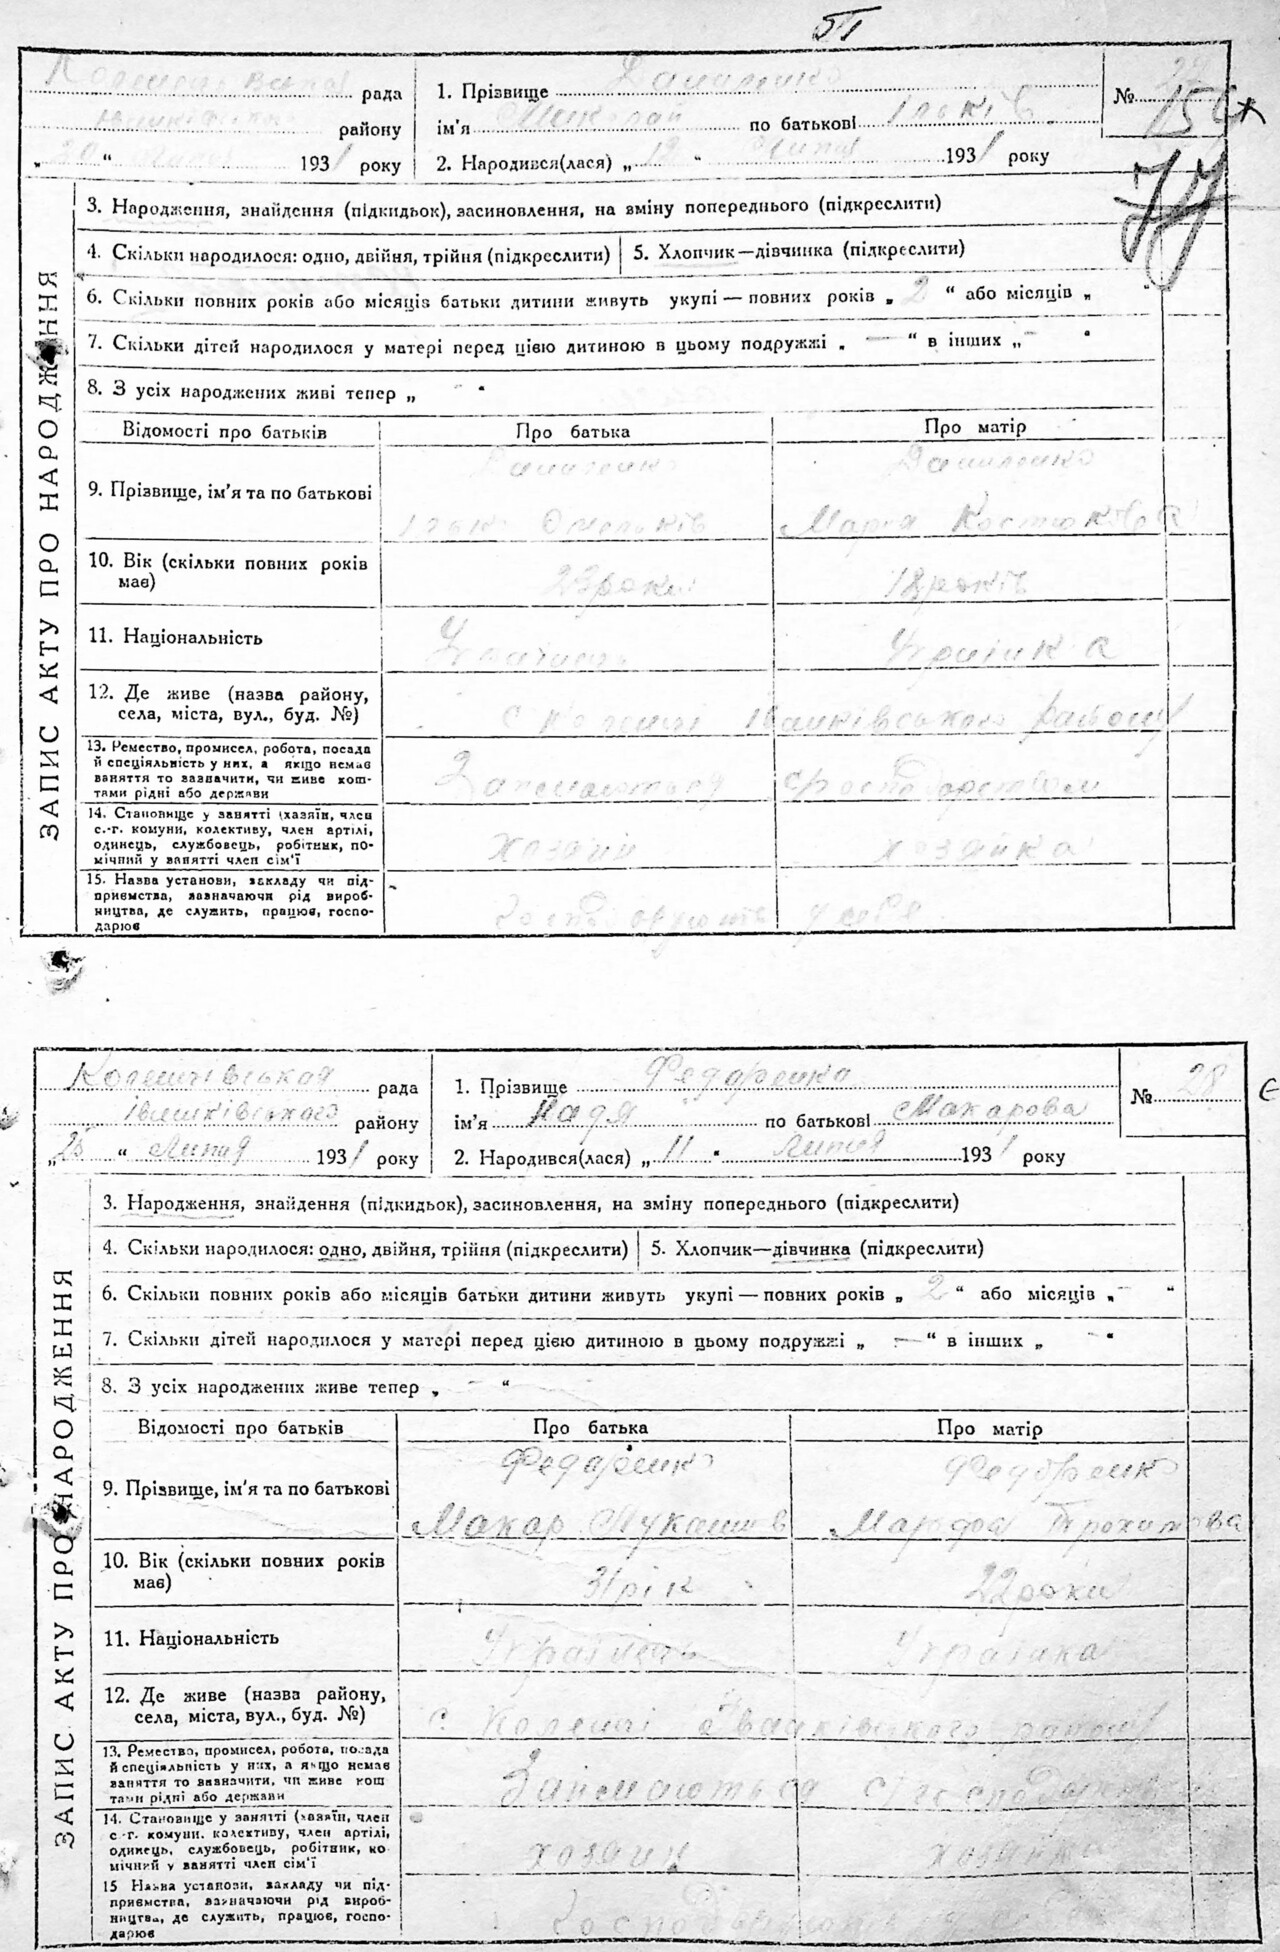 51
рада
району
„ 20 “ липня 1931 року
1. Прізвище Даниленко
ім'я Миколай по батькові Ільків
2. Народився(лася) „ 12 “ липня 1931 року
№ 27
77
ЗАПИС АКТУ ПРО НАРОДЖЕННЯ
3. Народження, знайдення (підкидьок), засиновлення, на зміну попереднього (підкреслити)
4. Скільки народилося: одно, двійня, трійня (підкреслити)
5. Хлопчик—дівчинка (підкреслити)
6. Скільки повних років або місяців батьки дитини живуть укупі — повних років „ 2 “ або місяців „ “
7. Скільки дітей народилося у матері перед цією дитиною в цьому подружжі „ — “ в інших „ — “
8. З усіх народжених живі тепер „ “
Відомості про батьків Про батька Про матір
9. Прізвище, ім'я та по батькові
Даниленко Даниленко
Ілько Омельків Мария Костюкова
10. Вік (скільки повних років
має)
23 роки 18 років
11. Національність Українець Українка
12. Де живе (назва району,
села, міста, вул., буд. №)
району
13. Ремество, промисел, робота, посада
й спеціяльність у них, а якщо немає
заняття то зазначити, чи живе кош-
тами рідні або держави
Займаються господарством
14. Становище у занятті (хазяїн, член
с.-г. комуни, колективу, член артілі,
одинець, службовець, робітник, по-
мічний у занятті член сім'ї
хозяин хозяйка
15. Назва установи, закладу чи під-
приємства, зазначаючи рід вироб-
ництва, де служить, працює, госпо-
дарює
у себе
рада
району
„ 25 “ Липня 1931 року
1. Прізвище Федаренко
ім'я Надя по батькові Макарова
2. Народився(лася) „ 11 “ Липня 1931 року
№ 28
Є
ЗАПИС АКТУ ПРО НАРОДЖЕННЯ
3. Народження, знайдення (підкидьок), засиновлення, на зміну попереднього (підкреслити)
4. Скільки народилося: одно, двійня, трійня (підкреслити)
5. Хлопчик—дівчинка (підкреслити)
6. Скільки повних років або місяців батьки дитини живуть укупі — повних років „ 2 “ або місяців „ — “
7. Скільки дітей народилося у матері перед цією дитиною в цьому подружжі „ — “ в інших „ — “
8. З усіх народжених живе тепер „ — “
Відомості про батьків Про батька Про матір
9. Прізвище, ім'я та по батькові
Федаренко Федоренко
Макар Лукашів Марфа Трохимова
10. Вік (скільки повних років
має)
31 рік 22 роки
11. Національність Українець Українка
12. Де живе (назва району,
села, міста, вул., буд. №)
с. району
13. Ремество, промисел, робота, посада
й спеціяльність у них, а якщо немає
заняття то зазначити, чи живе кош
тами рідні або держави
Займаються
14. Становище у занятті (хазяїн, член
с.-г. комуни. колективу, член артілі,
одинець, службовець, робітник, по
мічний у занятті член сім'ї
хозаин хозайка
15 Назва установи, закладу чи під-
приємства, зазначаючи рід вироб-
ництва, де служить, працює, госпо-
дарює